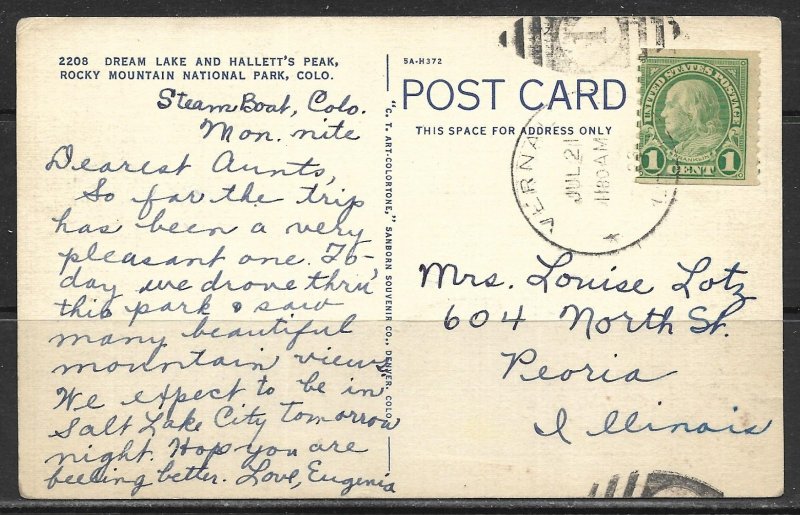 2208 DREAM LAKE AND HALLETT'S PEAK,
ROCKY MOUNTAIN NATIONAL PARK, COLO.
SteamBoat, Colo.
Mon. nite
Dearest Aunts,
So far the trip
has been a very
pleasant one. To-
day we drove thru
this park & saw
many beautiful
mountain views.
We expect to be in
Salt Lake City tomorrow
night. Hop you are
beeling better. Love, Eugenia
"C. T. ART-COLORTONE," SANBORN SOUVENIR CO., DENVER, COLO.
5A-H372
POST CARD
THIS SPACE FOR ADDRESS ONLY
VERNA
JUL 21
1130 AM
1
UNITED STATES POSTAGE
FRANKLIN
1 CENT 1
Mrs. Louise Lotz
604 North St.
Peoria
Illinois